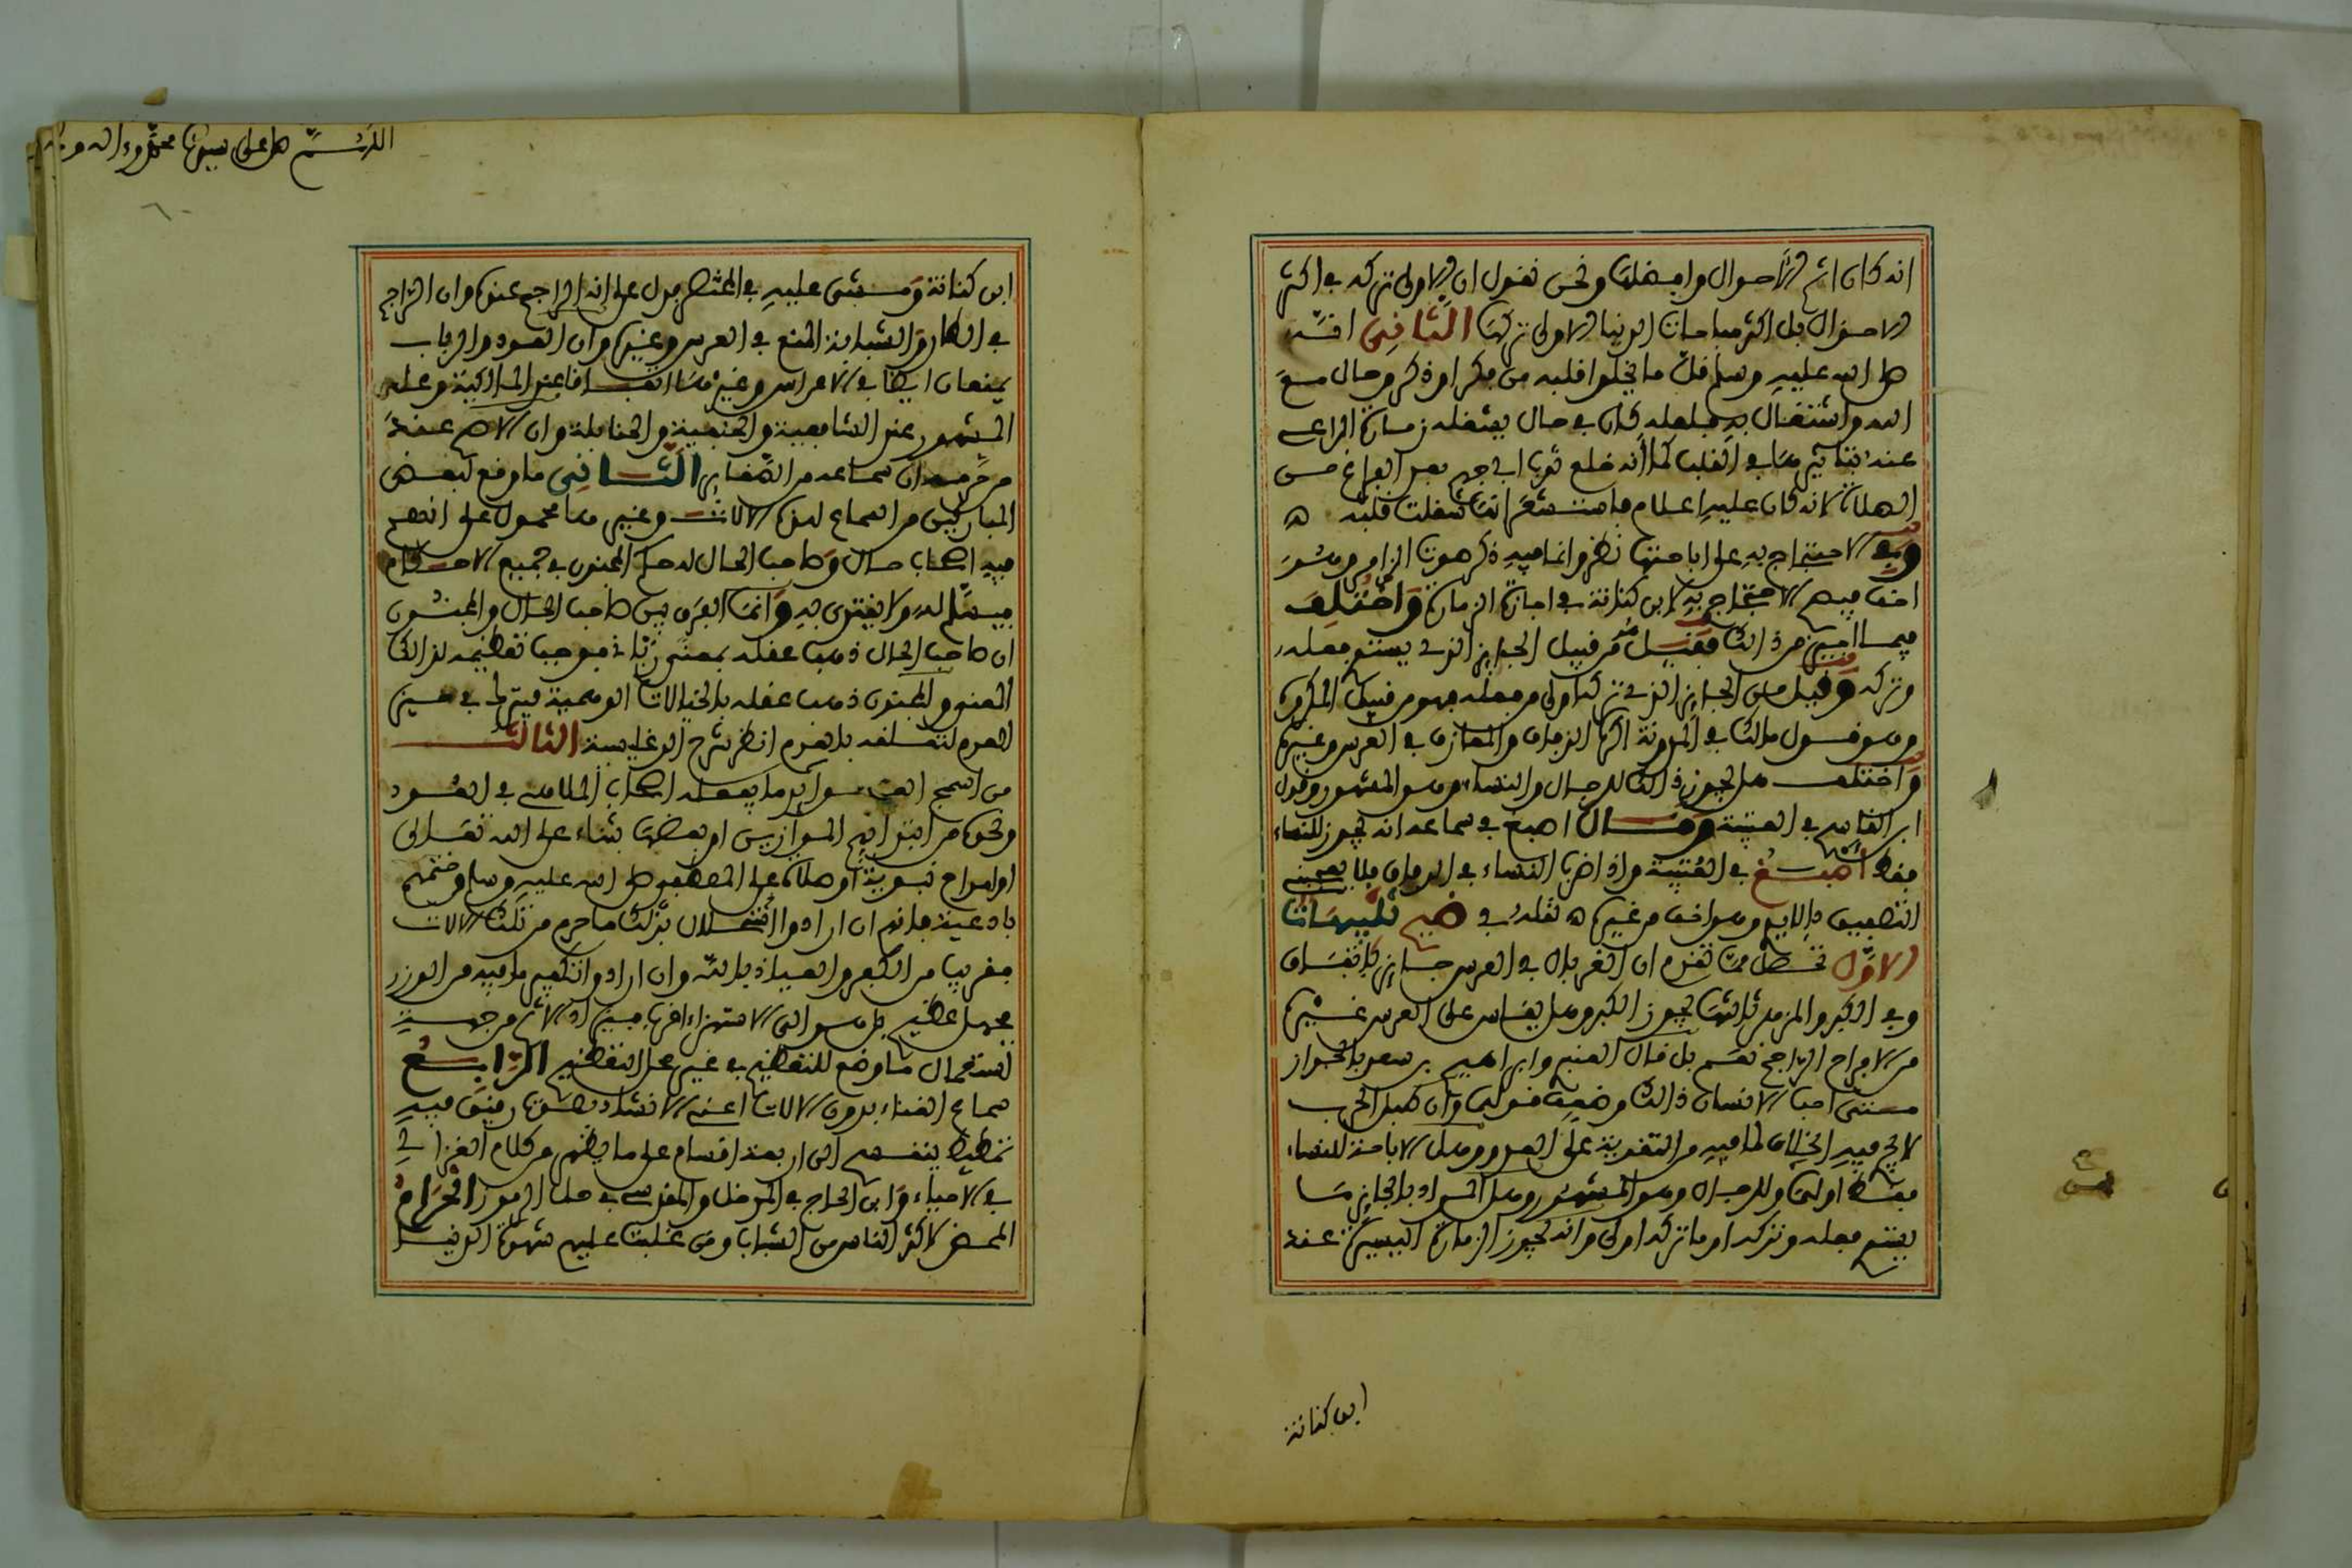 انه كان اتم الاحوال وافضلها ونحن نقول ان الاولى تركه في اكثر
الاحوال بل اكثر مباحات الدنيا الاولى تركها الثاني انه
صلى الله عليه وسلم قل ما يخلوا قلبه من فكر او ذكر وحال مع
الله واشتغال به فلعله كان في حال يشغله زمارة الراعي
عنه بتاثيرها في القلب كما انه خلع ثوب ابي جهم بعد الفراغ من
الصلاة لانه كان عليه اعلام فاستشعر انها شغلت قلبه ه
وفي الاحتجاج به على اباحتها نظر وانما فيه ذكر صوت الزامر وسد
اذنيه الاحتجاج به لابن كنانة في اجازة الزمارة واختلف
فيما اجيز من ذالك فقيل هو من قبيل الجايز الذي يستوي فعله
وتركه وقيل من الجايز الذي تركه اولى من فعله فهو من قبيل المكروه
وهو قول مالك في المدونة اكره الدفاف والمعازف في العرس وغيره
واختلف هل يجوز ذالك للرجال والنساء وهو المشهور وقول
ابن القاسم في العتبية وقال اصبغ في سماعه انه يجوز للنساء
فقط اصبغ في العتبية واذا ضرب النساء في الدفاف فلا يعجبني
التصفيق بالايدي وهو اخف من غيره ه نقله في ضيح تنبيهات
الاول تحصل مما تقدم ان الغربال في العرس جايز باتفاق
وفي الكبر والمزهر ثالثها يجوز الكبر وهل يقاس على العرس غيره
من الافراح الراجح نعم بل قال العنبري وابراهيم بن سعد بالجواز
متى احب الانسان ذالك وضعف قولهما وان طبل الحرب
لا يجري فيه الخلاف لما فيه من التقوية على العدو وهل الاباحة للنساء
فقط اولهن وللرجال وهو المشهور وهل المراد بالجايز ما
يستوي فعله وتركه او ما تركه اولى وانه يجوز الزمارة اليسيرة عند
ابن كنانة
اللهم صل على سيدنا محمد وءاله وصحبه
٦٠
ابن كنانة ومشى عليه في المختصر فدل على انه الراجح عنده وان الراجح
في الطار والشبابة المنع في العرس وغيره وان العود والرباب
يمنعان ايضا في الاعراس وغيرها اتفاقا عند المالكية وعلى
المشهور عند الشافعية والحنفية والحنابلة وان الاصح عند
من حرمه ان سماعه من الصغاير الثاني ما وقع لبعض
المباركين من السماع لهذه الالات وغيرها محمول على انهم
فيه اصحاب حال وصاحب الحال له حكم المجنون في جميع الاحكام
فيسلم له ولا يقتدى به وانما الفرق بين صاحب الحال والمجنون
ان صاحب الحال ذهب عقله بمعنى رباني فوجب تعظيمه لذالك
المعنى والمجنون ذهب عقله بالخيالات الوهمية فيترك في حيز
العدم لتعلقه بالعدم انظر شرح الوغليسية الثالث
من اسمج القبايح وايد ما يفعله اصحاب الملاهي في العود
ونحوه من ابتدايهم الموازين او بعضها بثناء على الله تعالى
او امداح نبوية او صلاة على المصطفى صلى الله عليه وسلم وختمهم
بادعية فانهم ان ارادوا استحلال بذلك ما حرم من تلك الالات
فقريب من الكفر والعياذ بالله وان ارادوا تكفير ما فيه من الوزر
فجهل عظيم بل هو الى الاستهزاء اقرب فيزداد الاثم من جهة
استعمال ما وضع للتعظيم في غير محل التعظيم الرابع
سماع الغناء بدون الالات اعني الانشاد بصوت رقيق فيه
تمطيط ينقسم الى اربعة اقسام على ما يظهر من كلام الغزالي
في الاحياء وابن الحاج في المدخل والمقدسي في حل الرموز الحرام
المحض لاكثر الناس من الشباب ومن غلبت عليهم شهوة الدنيا